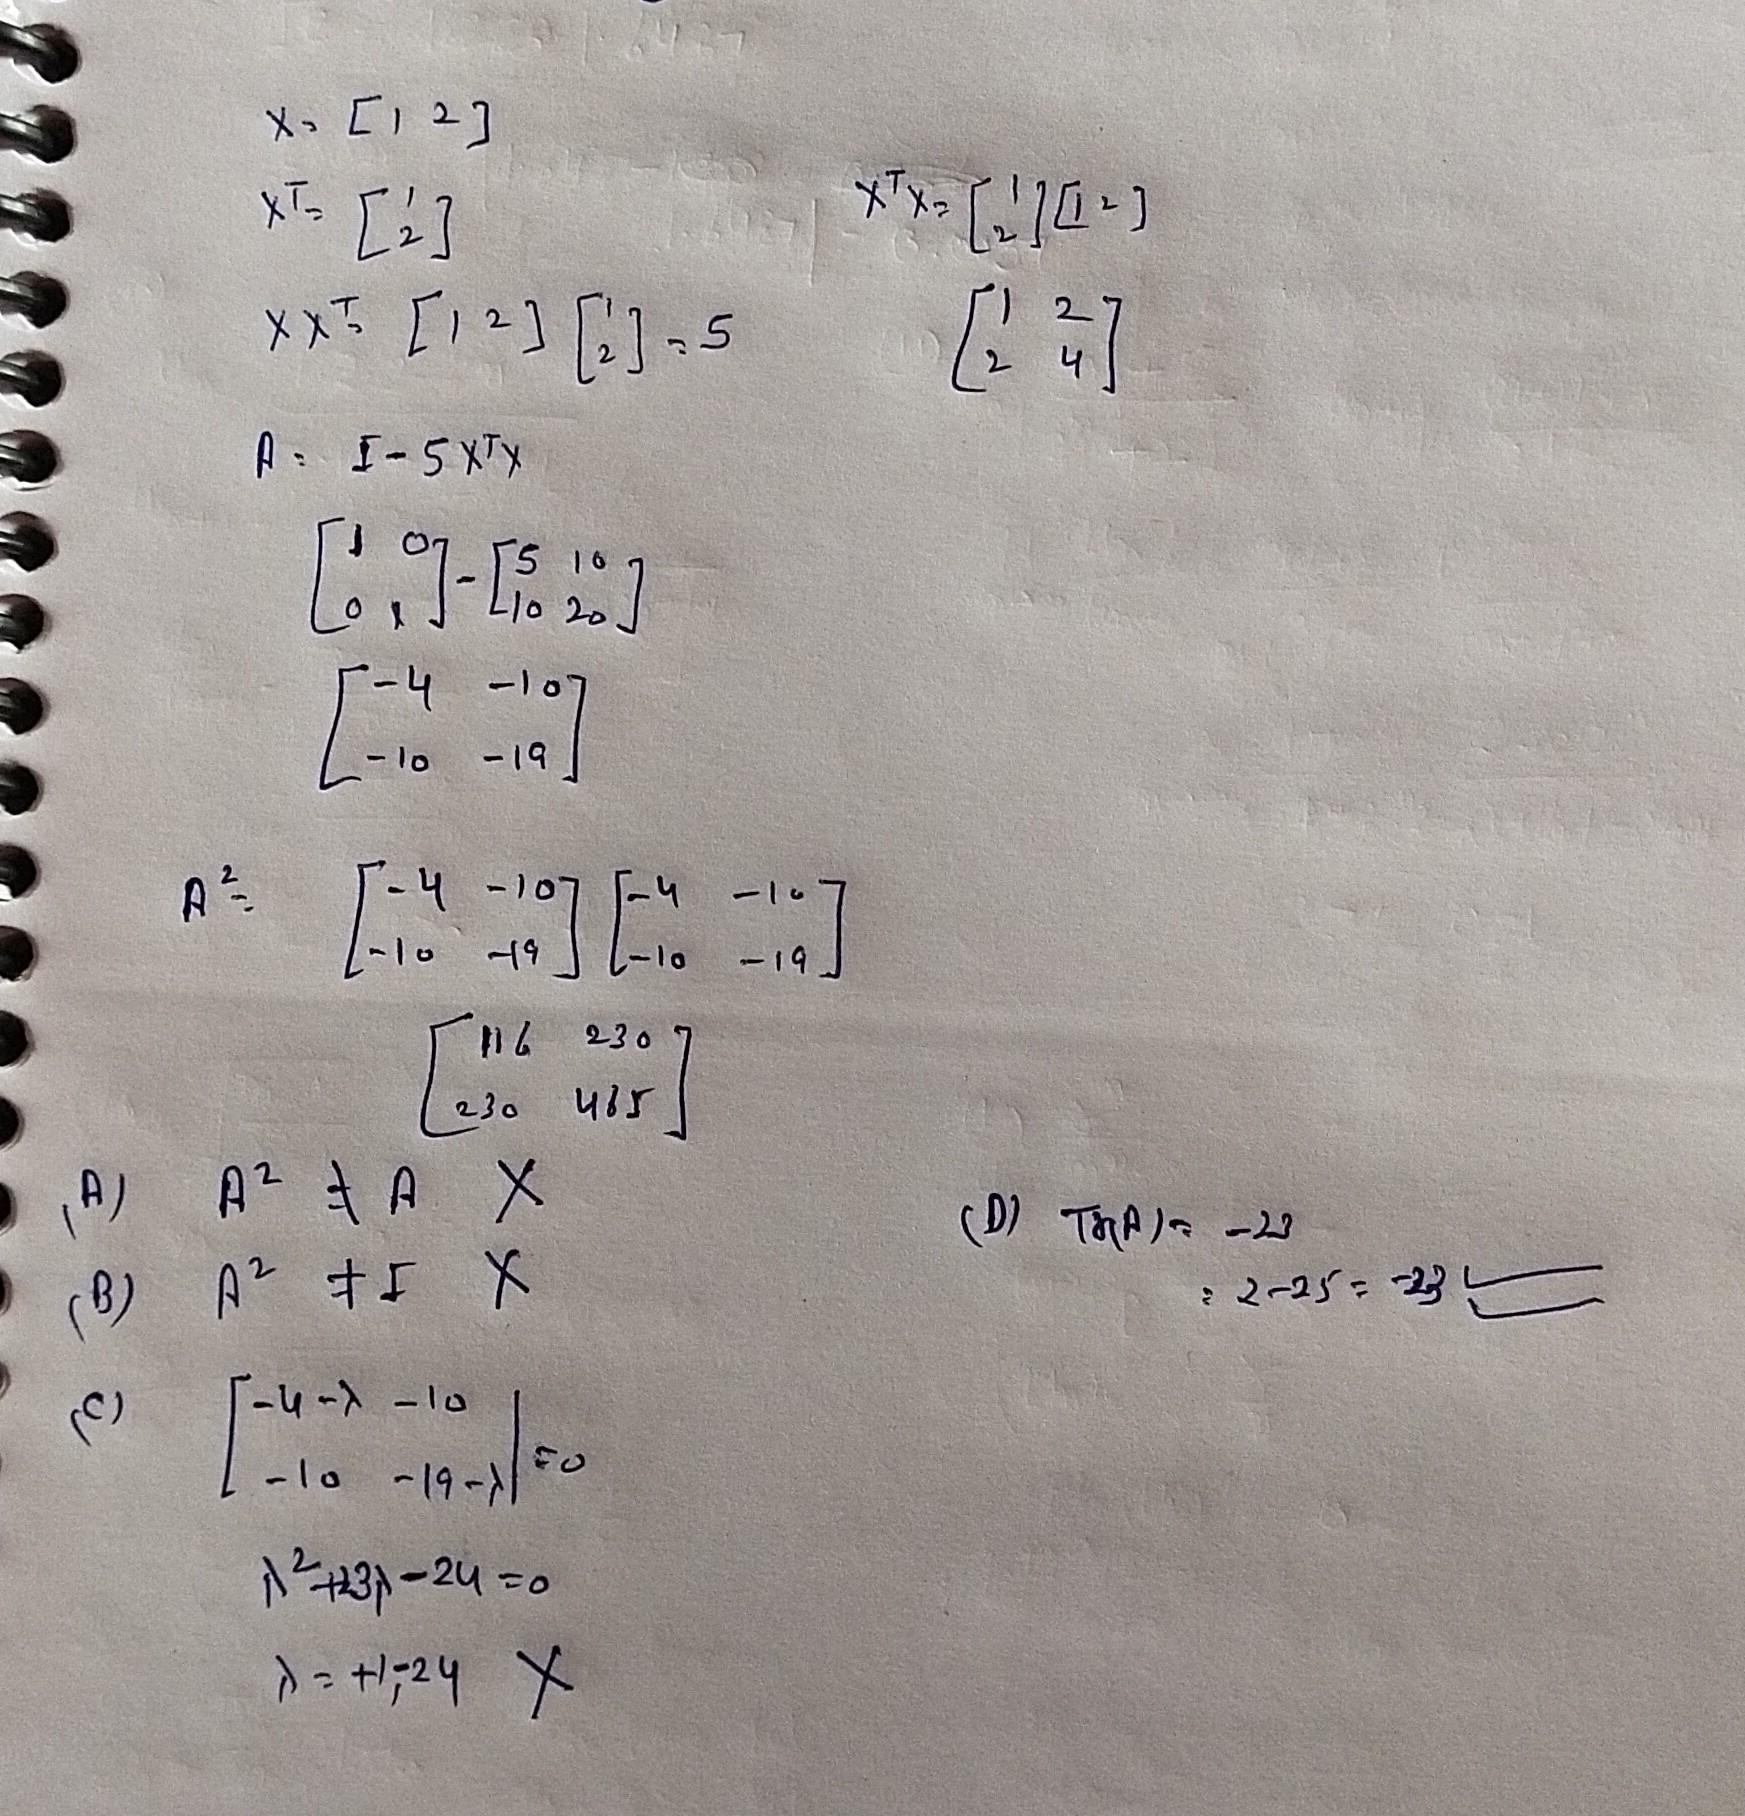 X = [1 2]
Xᵀ = [1
2]
XXᵀ = [1 2] [1
2] = 5
XᵀX = [1
2] [1 2]
[1 2
2 4]
A = I - 5XᵀX
[1 0
0 1] - [5 10
10 20]
[-4 -10
-10 -19]
A² = [-4 -10
-10 -19] [-4 -10
-10 -19]
[116 230
230 465]
(A) A² ≠ A X
(B) A² ≠ I X
(C) [-4-λ -10
-10 -19-λ| = 0
λ² + 23λ - 24 = 0
λ = +1, -24 X
(D) Tr(A) = -23
= 2 - 25 = -23